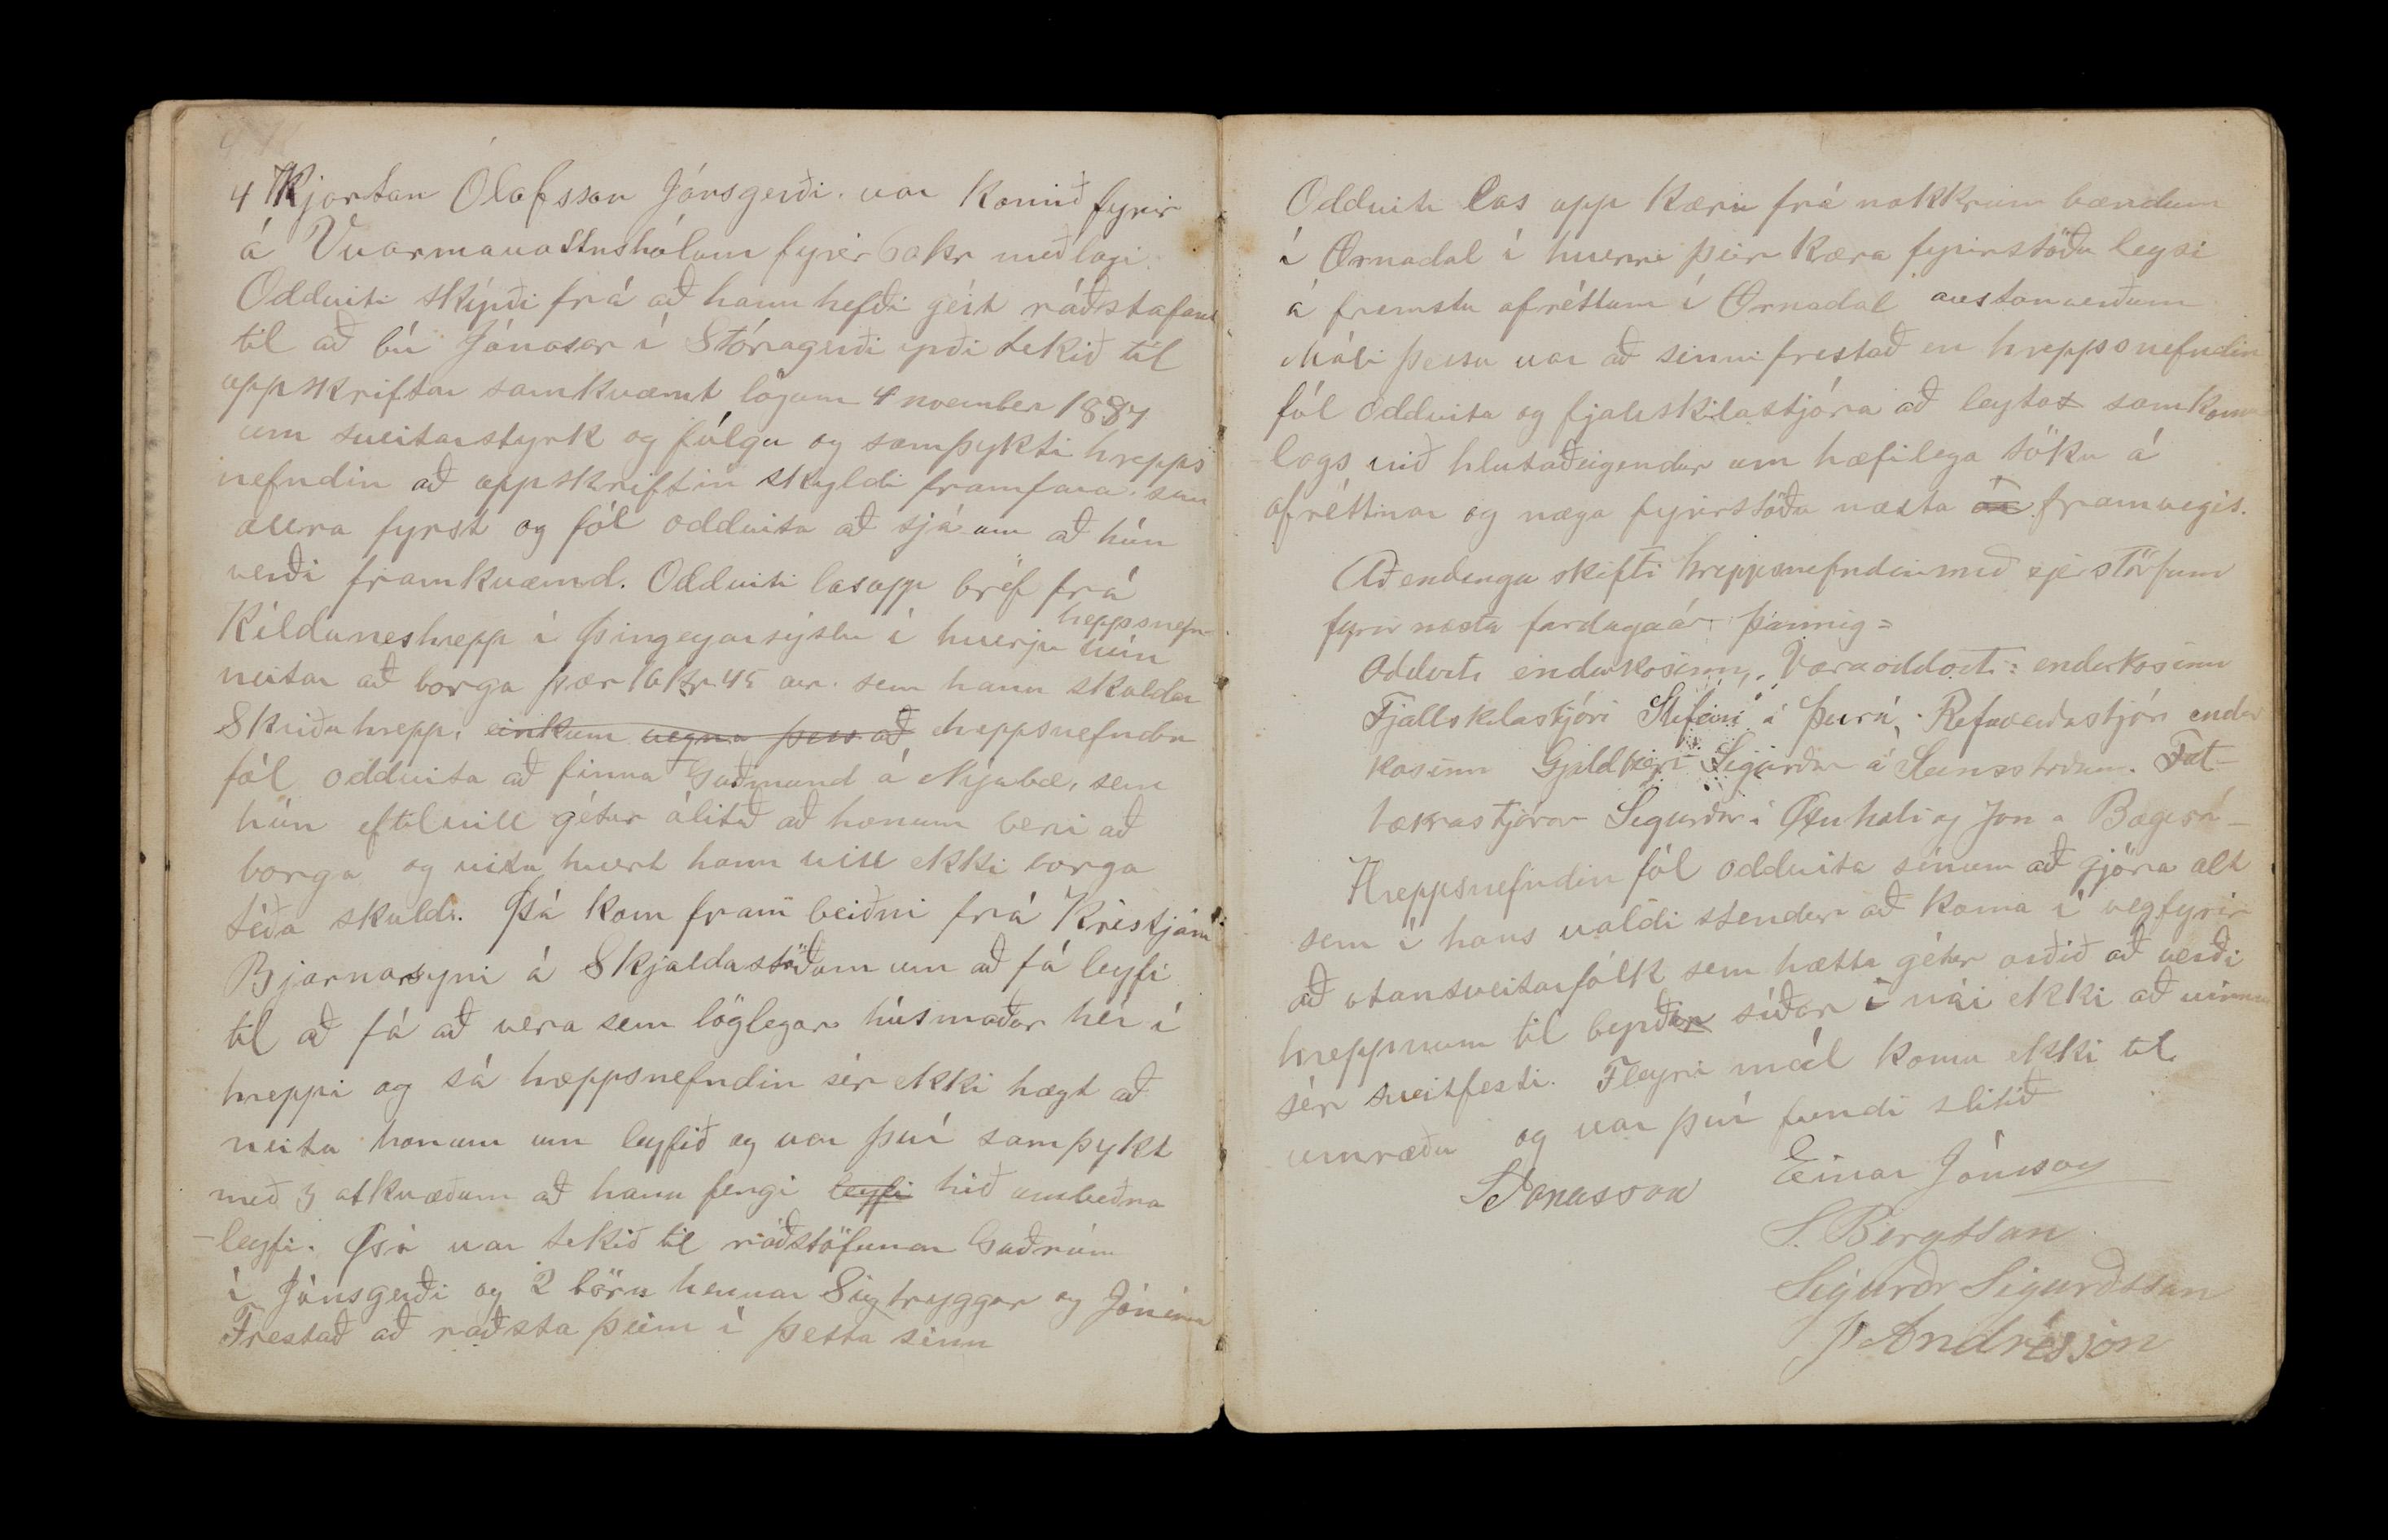 4 Kjartan Ólafsson Jónsgerði. var komið fyrir
á Vvarmavattnshólum fyrir 60 kr meðlagi.
Oddviti skýrði frá að hann hefði gért ráðstafanir
til að bú Jónasar í Stóragerði yrði tekið til
uppskriftar samkvæmt lögum 4 november 1887
um sveitarstyrk og fúlgu og samþykti hrepps
nefndin að uppskriftin skyldi framfara sem
allra fyrst og fól oddvita að sjá um að hún
verði framkvæmd. Oddviti las upp bréf frá
Kelduneshrepp í Þingeyarsýslu í hverju hreppsnefn-
hún
neitar að borga þær 16 kr 45 aur. sem hann skuldar
Skriðuhrepp, einkum vegna þess að hreppsnefndin
fól oddvita að finna Guðmund á Nýabæ, sem
hún eftilvill gétur álitið að honum beri að
borga og vita hvert hann vill ekki borga
téða skuld. Þá kom fram beiðni frá Kristjáni
Bjarnarsyni á Skjaldastöðum um að fá leyfi
til að fá að vera sem löglegur húsmaður hér í
hreppi og sá hreppsnefndin sér ekki hægt að
neita honum um leyfið og var því samþykt
með 3 atkvæðum að hann fengi leyfi hið umbeðna
leyfi. Þá var tekið til ráðstöfunar Guðrún
í Jónsgerði og 2 börn hennar Sigtryggur og Jónína
Frestað að raðsta þeim í þetta sinn
Oddviti las upp kæru frá nokkrum bændum
í Öxnadal í hverri þeir kæra fyrirstöðu leysi
á fremstu afréttum í Öxnadal austanverðum
Máli þessu var að sinni frestað en hreppsnefndin
fól oddvita og fjallskilastjóra að leytas samkomu
lags við hlutaðeigendur um hæfilega töku á
afréttinar og næga fyrirstöðu næsta ár framvegis.
Að endingu skifti hreppsnefndin með sjer störfum
fyrir næsta fardagaár þannig =
Oddviti endurkosinn, Varaoddviti: endurkosinn
Fjallskilastjóri Stefáni á Þverá, Refaveiðastjóri endur
kosinn Gjaldkeri Sigurður á Steinsstöðum. Fát-
tækrastjórar Sigurður í Öxnhóli og Jón á Bægisá-
Hreppsnefndin fól oddvita sínum að gjöra alt
sem í hans valdi stendur að koma í veg fyrir
að utansveitarfólk sem hætta gétur orðið að verði
hreppnum til byrðar síðar í nái ekki að vinna
sér sveitfesti. Fleyri mál komu ekki til
umræðu og var því fundi slitið
S Jónasson Einar Jónsson
S. Bergsson
Sigurðr Sigurðsson
J Andrésson